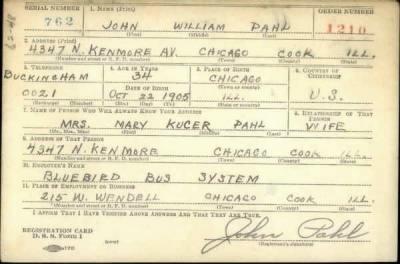 SERIAL NUMBER 1. NAME (Print) ORDER NUMBER
762 JOHN WILLIAM PAHL 1210
(First) (Middle) (Last)
2. ADDRESS (Print)
4347 N. KENMORE AV. CHICAGO COOK ILL.
(Number and street or R. F. D. number) (Town) (County) (State)
3. TELEPHONE 4. AGE IN YEARS 5. PLACE OF BIRTH 6. COUNTRY OF CITIZENSHIP
BUCKINGHAM 34 CHICAGO
DATE OF BIRTH (Town or county)
0021 OCT 22 1905 ILL. U.S.
(Exchange) (Number) (Mo.) (Day) (Yr.) (State or country)
7. NAME OF PERSON WHO WILL ALWAYS KNOW YOUR ADDRESS 8. RELATIONSHIP OF THAT PERSON
MRS. MARY KUCER PAHL WIFE
(Mr., Mrs., Miss) (First) (Middle) (Last)
9. ADDRESS OF THAT PERSON
4347 N. KENMORE CHICAGO COOK ILL.
(Number and street or R. F. D. number) (Town) (County) (State)
10. EMPLOYER'S NAME
BLUEBIRD BUS SYSTEM
11. PLACE OF EMPLOYMENT OR BUSINESS
215 W. WENDELL CHICAGO COOK ILL.
(Number and street or R. F. D. number) (Town) (County) (State)
I AFFIRM THAT I HAVE VERIFIED ABOVE ANSWERS AND THAT THEY ARE TRUE.
REGISTRATION CARD
D. S. S. FORM 1 John Pahl
(Registrant's signature)